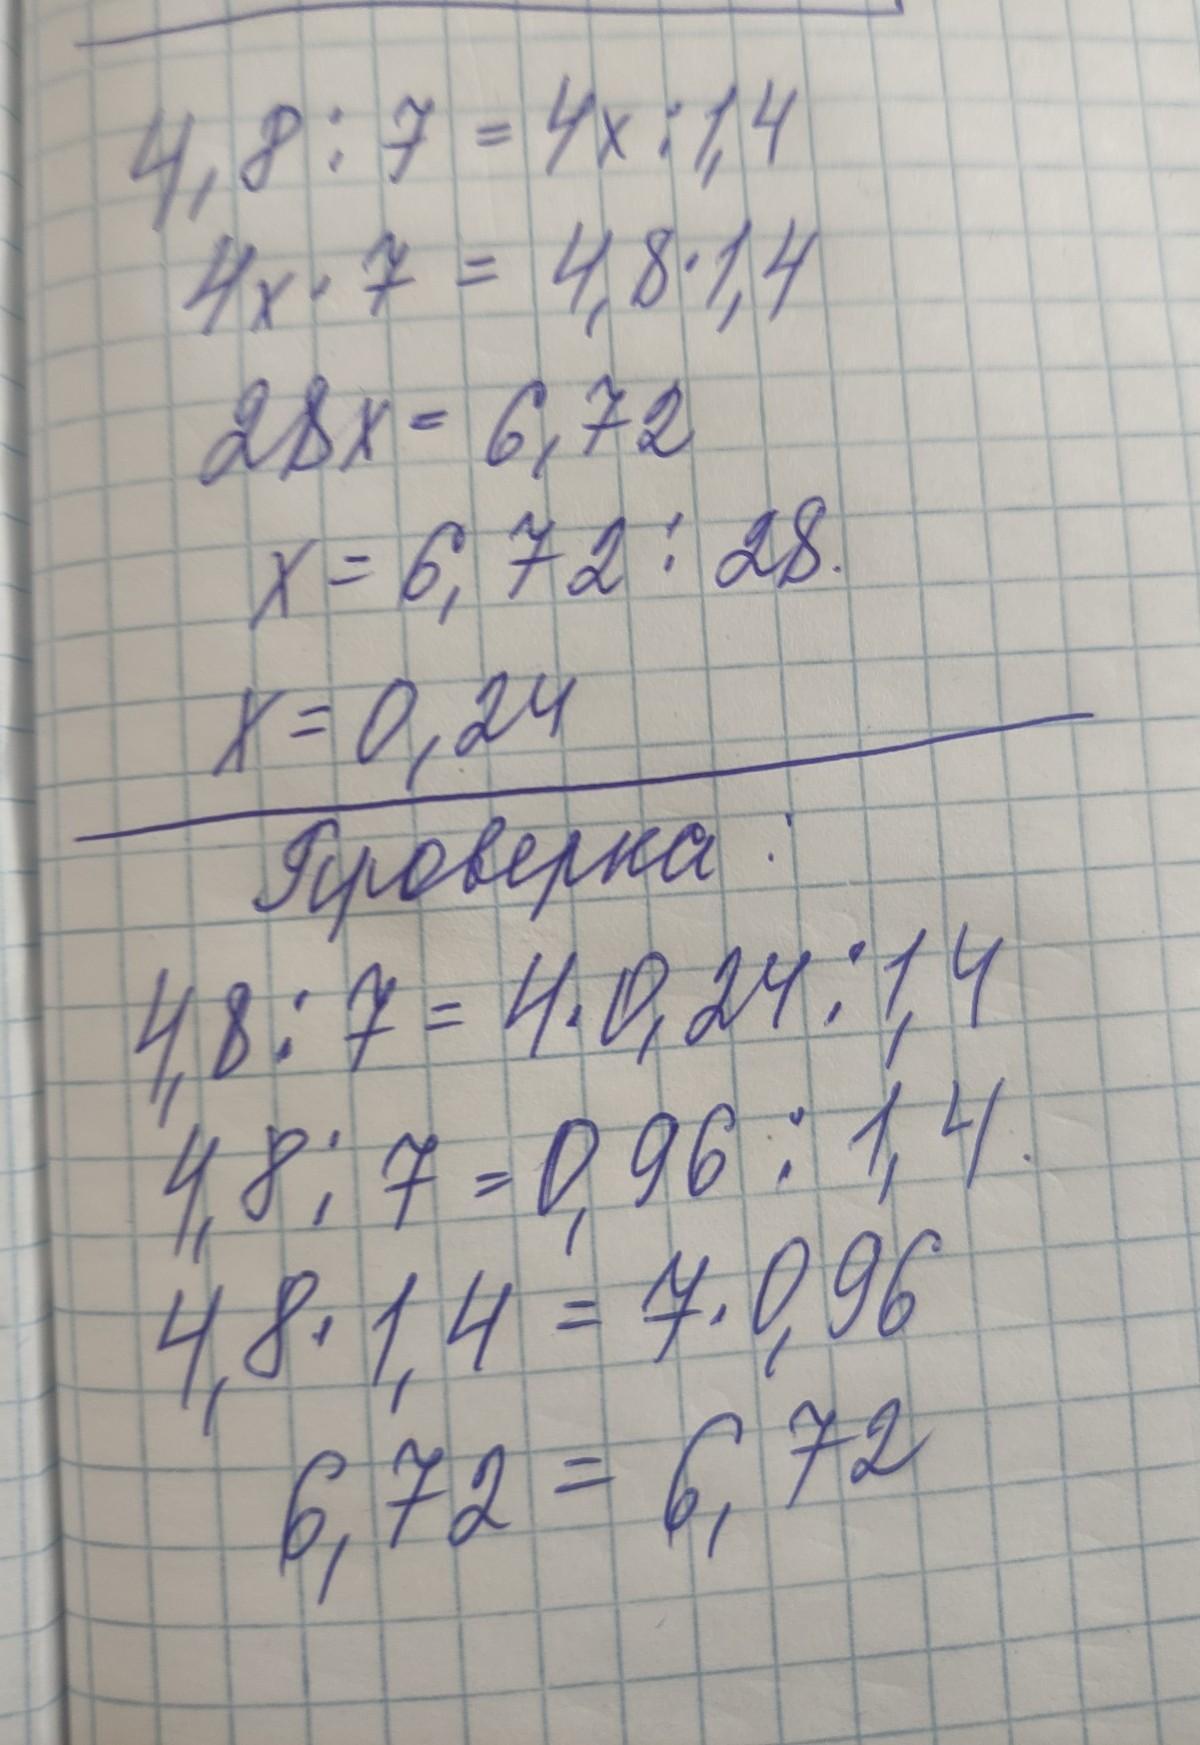 4,8 : 7 = 4x : 1,4
4x · 7 = 4,8 · 1,4
28x = 6,72
x = 6,72 : 28.
x = 0,24
Проверка :
4,8 : 7 = 4 · 0,24 : 1,4
4,8 : 7 = 0,96 : 1,4.
4,8 · 1,4 = 7 · 0,96
6,72 = 6,72